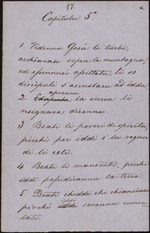 17.
Capitulu 5°
1 Vidennu Gesù li turbi,
acchianau supra la muntagna,
ed essennusi assittatu, li so
discipuli s'accustaru ad iddu
2 la vucca li
nsignava dicennu
3 Beati li poviri di spiritu,
pirchì per iddi è lu regnu
di li celi.
4 Beati li mansueti, pirchì
iddi pussidirannu la terra
5 Beati chiddi chi chiancinu
pirchì iddi sarannu cunsu
lati.